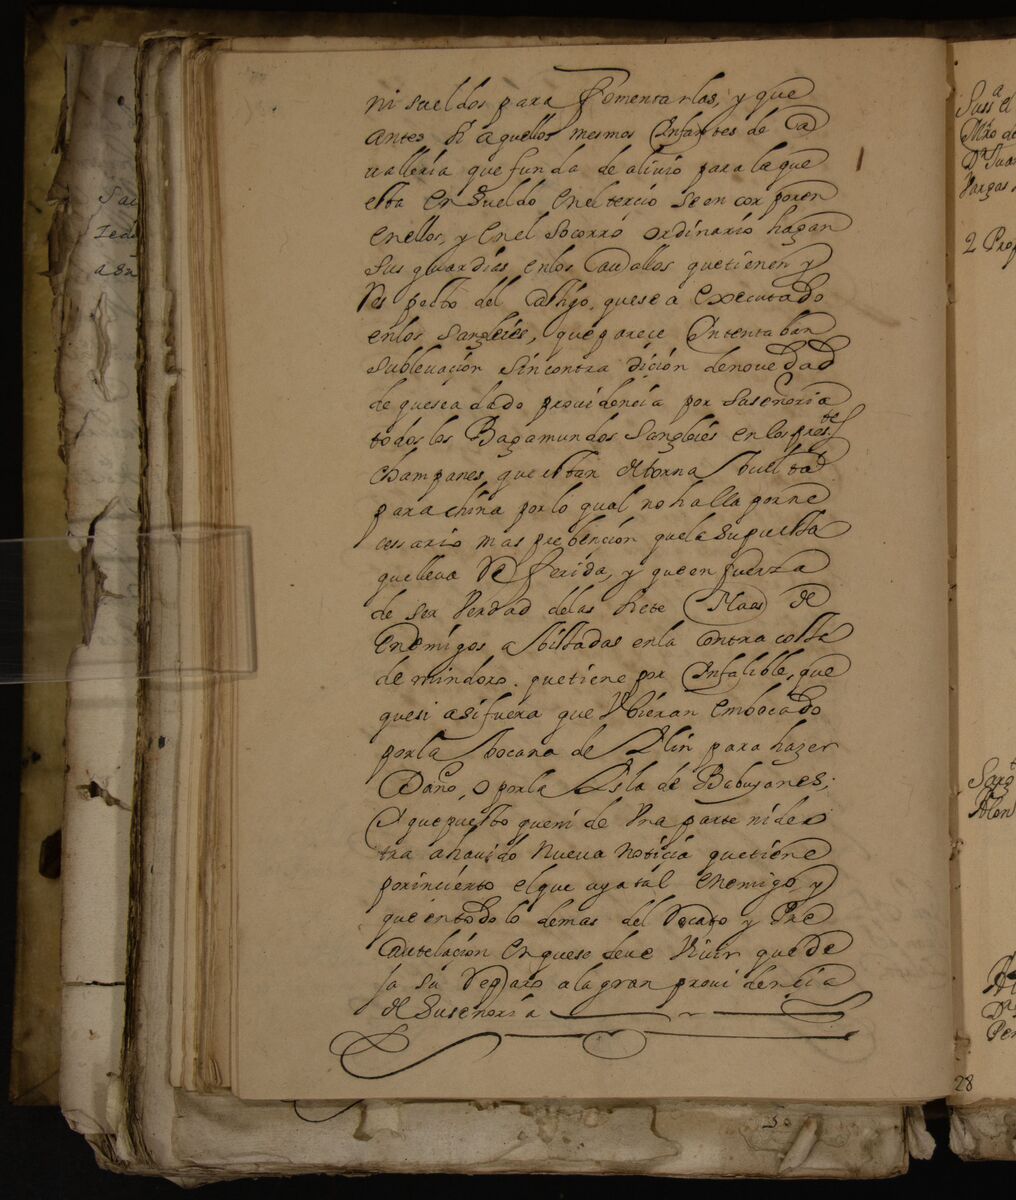 ni sueldos para fomentarlas, y que
antes si aquellos mesmos Infantes de Ca
valleria que funda de aliuio para la que
esta en sueldo en el tercio se en corporen
en ellos, y en el socorro ordinario hagan
sus guardias en los Cauallos que tienen y
Res pecto del castigo, que se a executado
en los sangleies, que parece Intentaban
sublevacion sin contra dicion de novedad
de que se a dado providencia por su señoria
todos los Bagamundos sangleies en los press.tes
champanes que estan de torna buelta
para china por lo qual no halla por ne
cessario mas prebencion que la supuesta
que lleva Re ferida, y que en fuerza
de ser Verdad de las siete Naos de
enemigos a bistadas en la contra costa
de mindoro. que tiene por Infalible, que
que si asi fuera que Vbieran embocado
por la bocana de Alin para hazer
Daño, o por la Isla de Babuyanes;
Y que puesto que ni de Vna parte ni de o
tra a hauido nueva noticia que tiene
por incierto el que aya tal enemigo, y
que en todo lo demas del Recato y Pre
cautelacion en que se deve Viuir que de
ja su Reparo a la gran providencia
de Suseñoria
Sarg.to
Juan
Vargas
2
28